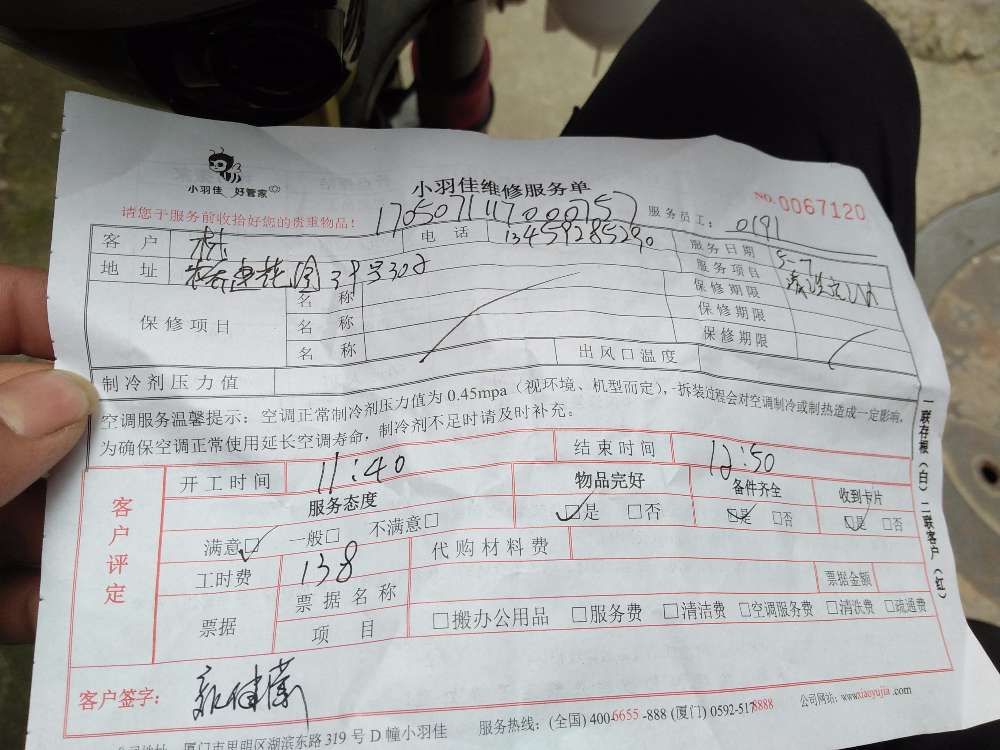 小羽佳 好管家
小羽佳维修服务单
NO.0067120
请您于服务前收拾好您的贵重物品!
170507117000757
服务员工: 0191
客户 林 电话 13459285290 服务日期 5-7
地址 莲花 39号302 服务项目 清洗
保修项目 名称 保修期限
名称 保修期限
名称 保修期限
制冷剂压力值 出风口温度
空调服务温馨提示:空调正常制冷剂压力值为0.45mpa(视环境、机型而定),拆装过程会对空调制冷或制热造成一定影响,
为确保空调正常使用延长空调寿命,制冷剂不足时请及时补充。
客户评定
开工时间 11:40 结束时间 12:50
服务态度 物品完好 备件齐全 收到卡片
满意□ 一般□ 不满意□ □是 □否 □是 □否 □是 □否
工时费 138 代购材料费
票据 票据名称 票据金额
项目 □搬办公用品 □服务费 □清洁费 □空调服务费 □清洗费 □疏通费
客户签字:
一联存根(白) 二联客户(红)
公司地址 厦门市思明区湖滨东路319号D幢小羽佳 服务热线:(全国)400-6655-888 (厦门)0592-5178888 公司网站:www.xiaoyujia.com